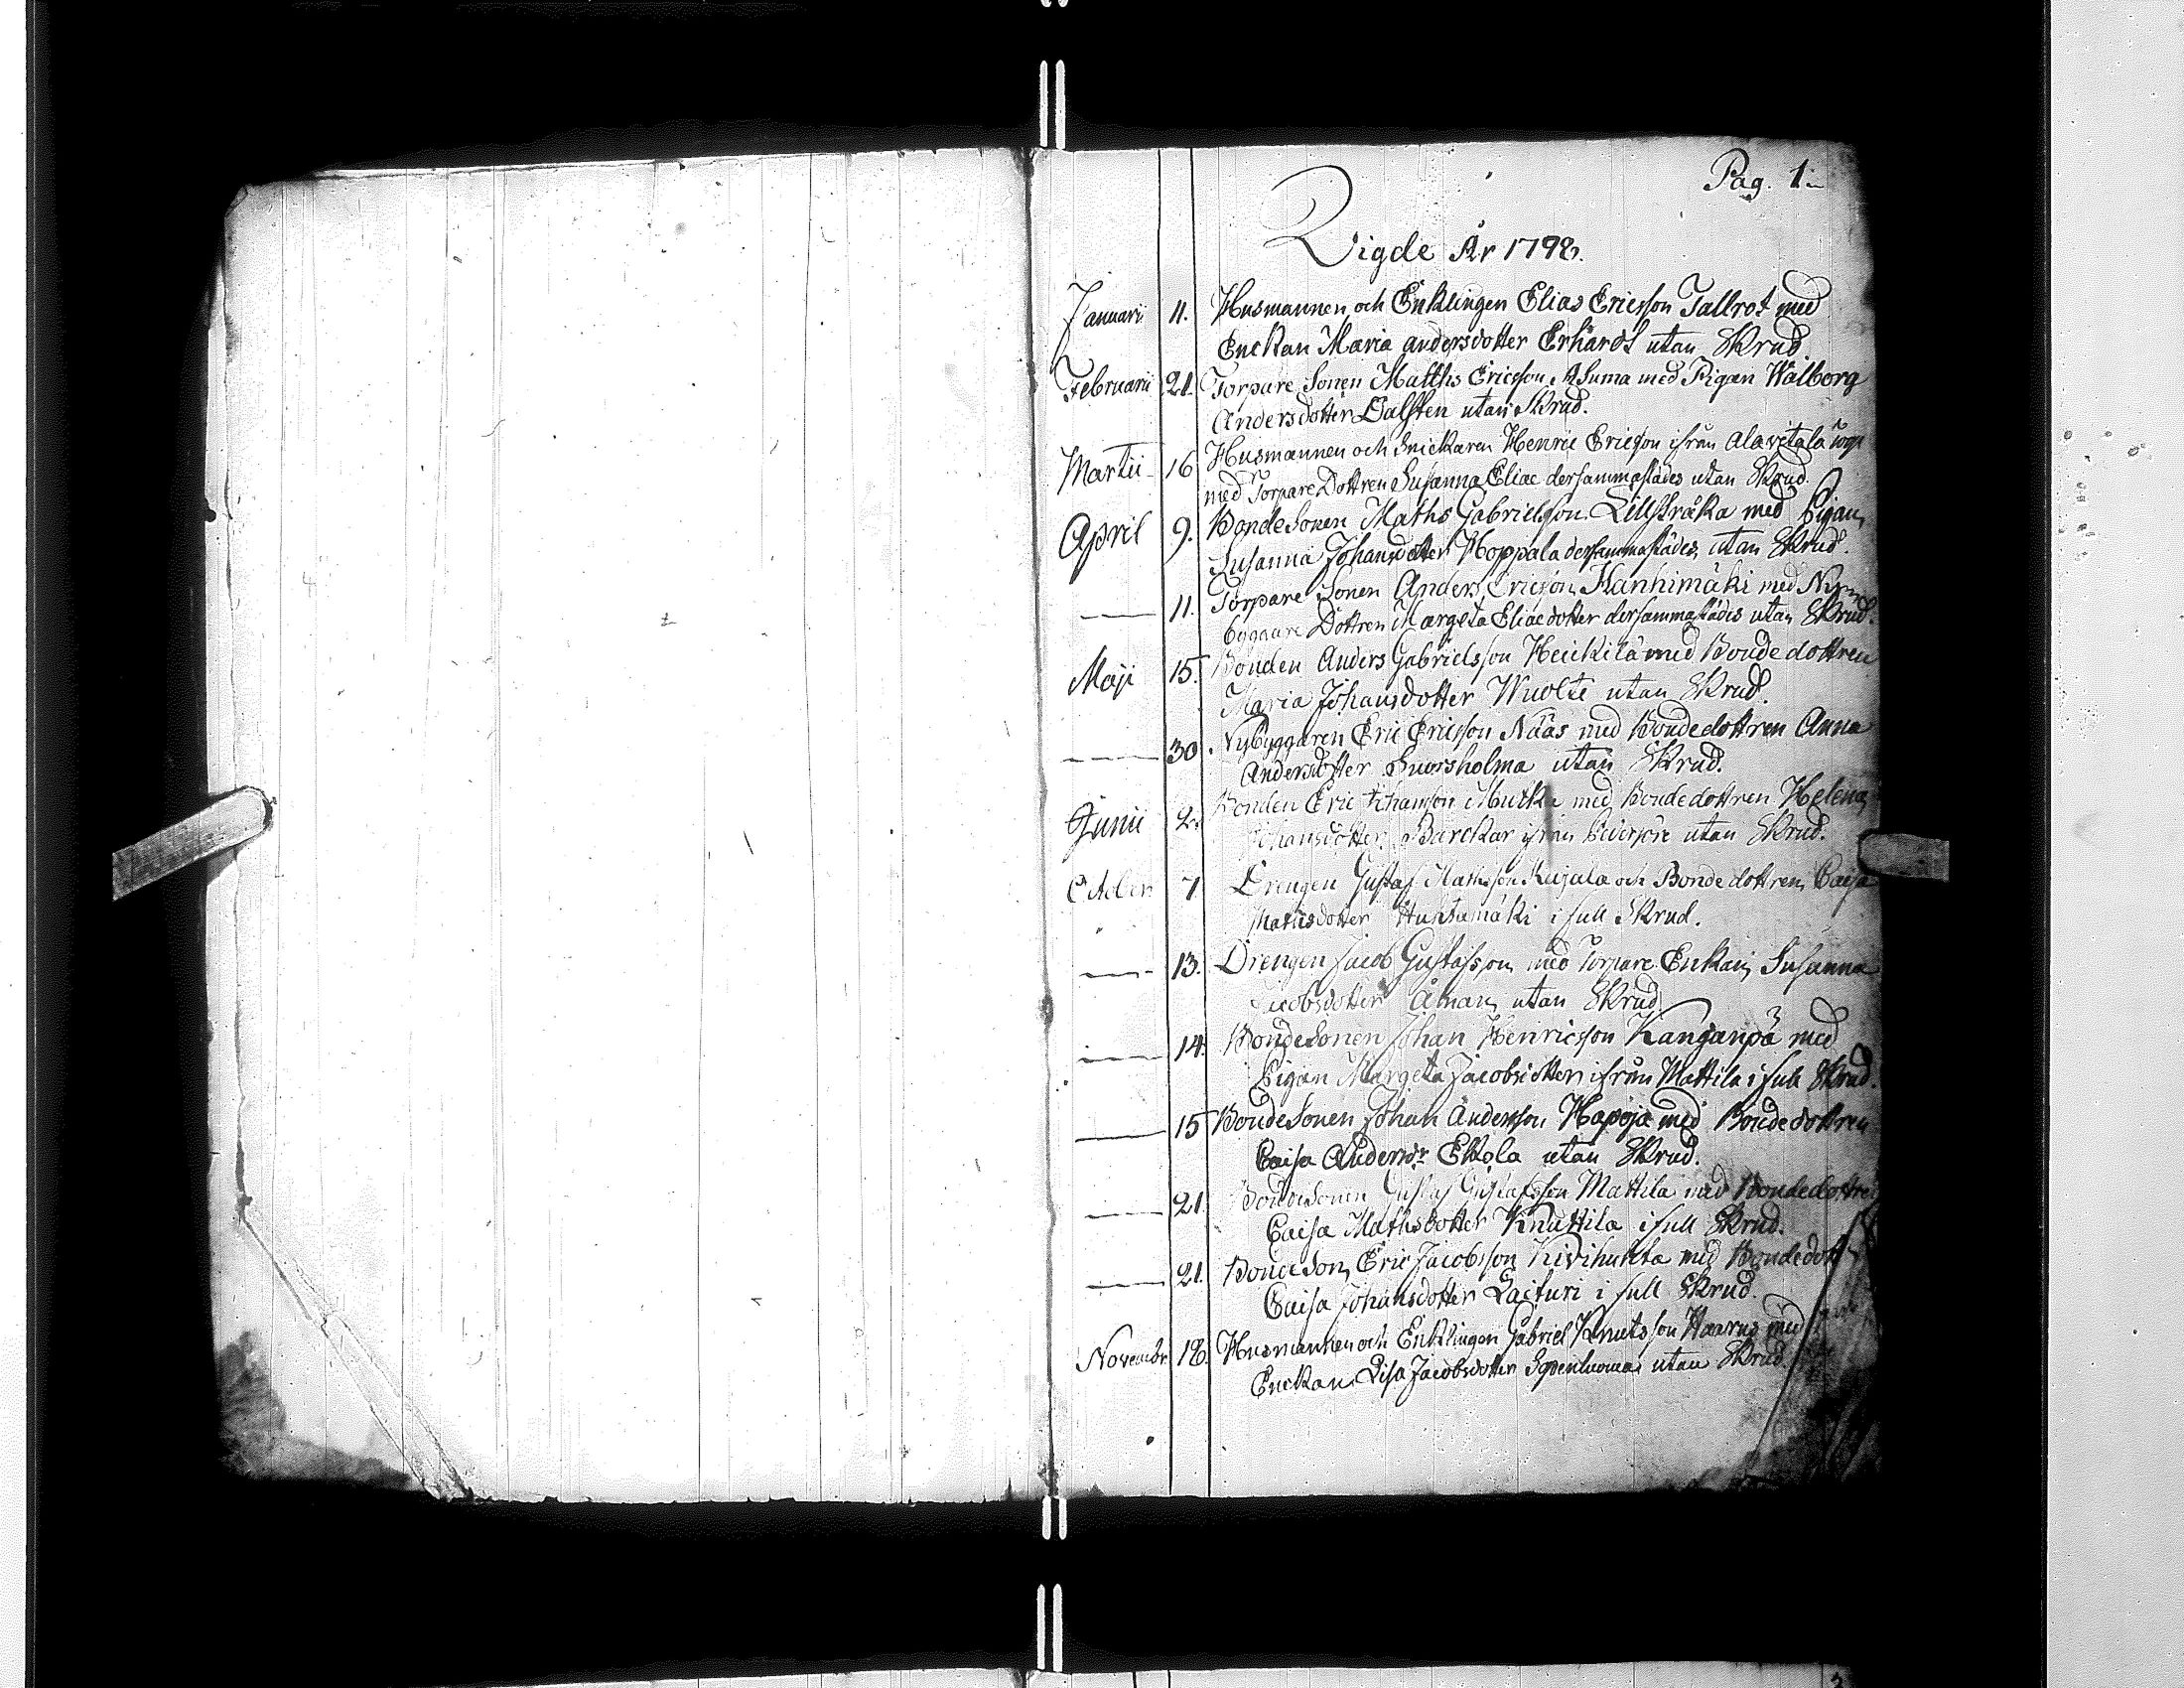 Pag. 1:
Vigde År 1798.
Januari 11. Husmannen och Enklingen Elias Ericsson Tallrot med
Enckan Maria andersdotter Erhardt utan Skrud
Februarii 21. Torpare Sonen Matths Ericsson med Pigan Walborg
Andersdotter Dalsten utan Skrud.
Martii 16 Husmannen och Snickaren Henric Ericsson ifrån Alavetala
med Torpare Dottren Susanna Eliae dersammastädes utan Skrud.
April 9. Bonde Sonen Maths Gabrielsson Lillstråka med Pigan
Susanna Johansdotter Hoppala dersammastädes utan Skrud.
11. Torpare Sonen Anders Ericsson Hanhimäki med Ny
byggare Dottren Margeta Eliaedotter dersammastädes utan Skrud.
Maji 15. Bonden Anders Gabrielsson Heickilä med Bonde dottren
Maria Johansdotter Wuolte utan Skrud.
30 Nybyggaren Eric Ericsson Nääs med Bondedottren Anna
Andersdotter utan Skrud.
Junii 2. Bonden Eric Johansson med Bondedottren Helena
Johansdotter ifrån utan Skrud.
October 7 Drengen Gustaf Mathsson Kujala och Bonde dottren Caisa
Mathsdotter Huhtamäki i full Skrud.
13. Drengen Jacob Gustafsson med Torpare Enkan Susanna
Jacobsdotter Åman utan Skrud
14. Bonde Sonen Johan Henricsson Kanganpä med
Pigan Margeta Jacobsdotter ifrån Mattila i full Skrud.
15 Bonde Sonen Johan Andersson Hapoja med Bondedottren
Caisa Andersdr Ekola utan Skrud.
21. Bonde Sonen Gustaf Gustafsson Mattila med Bondedottren
Caisa Mathsdotter Knuttila i full Skrud.
21. Bonde Son Eric Jacobsson Kivihuhta med Bondedott
Caisa Johansdotter Laituri i full Skrud.
Novembr 18. Husmannen och Enklingen Gabriel Knutsson med
Enckan Lisa Jacobsdotter utan Skrud